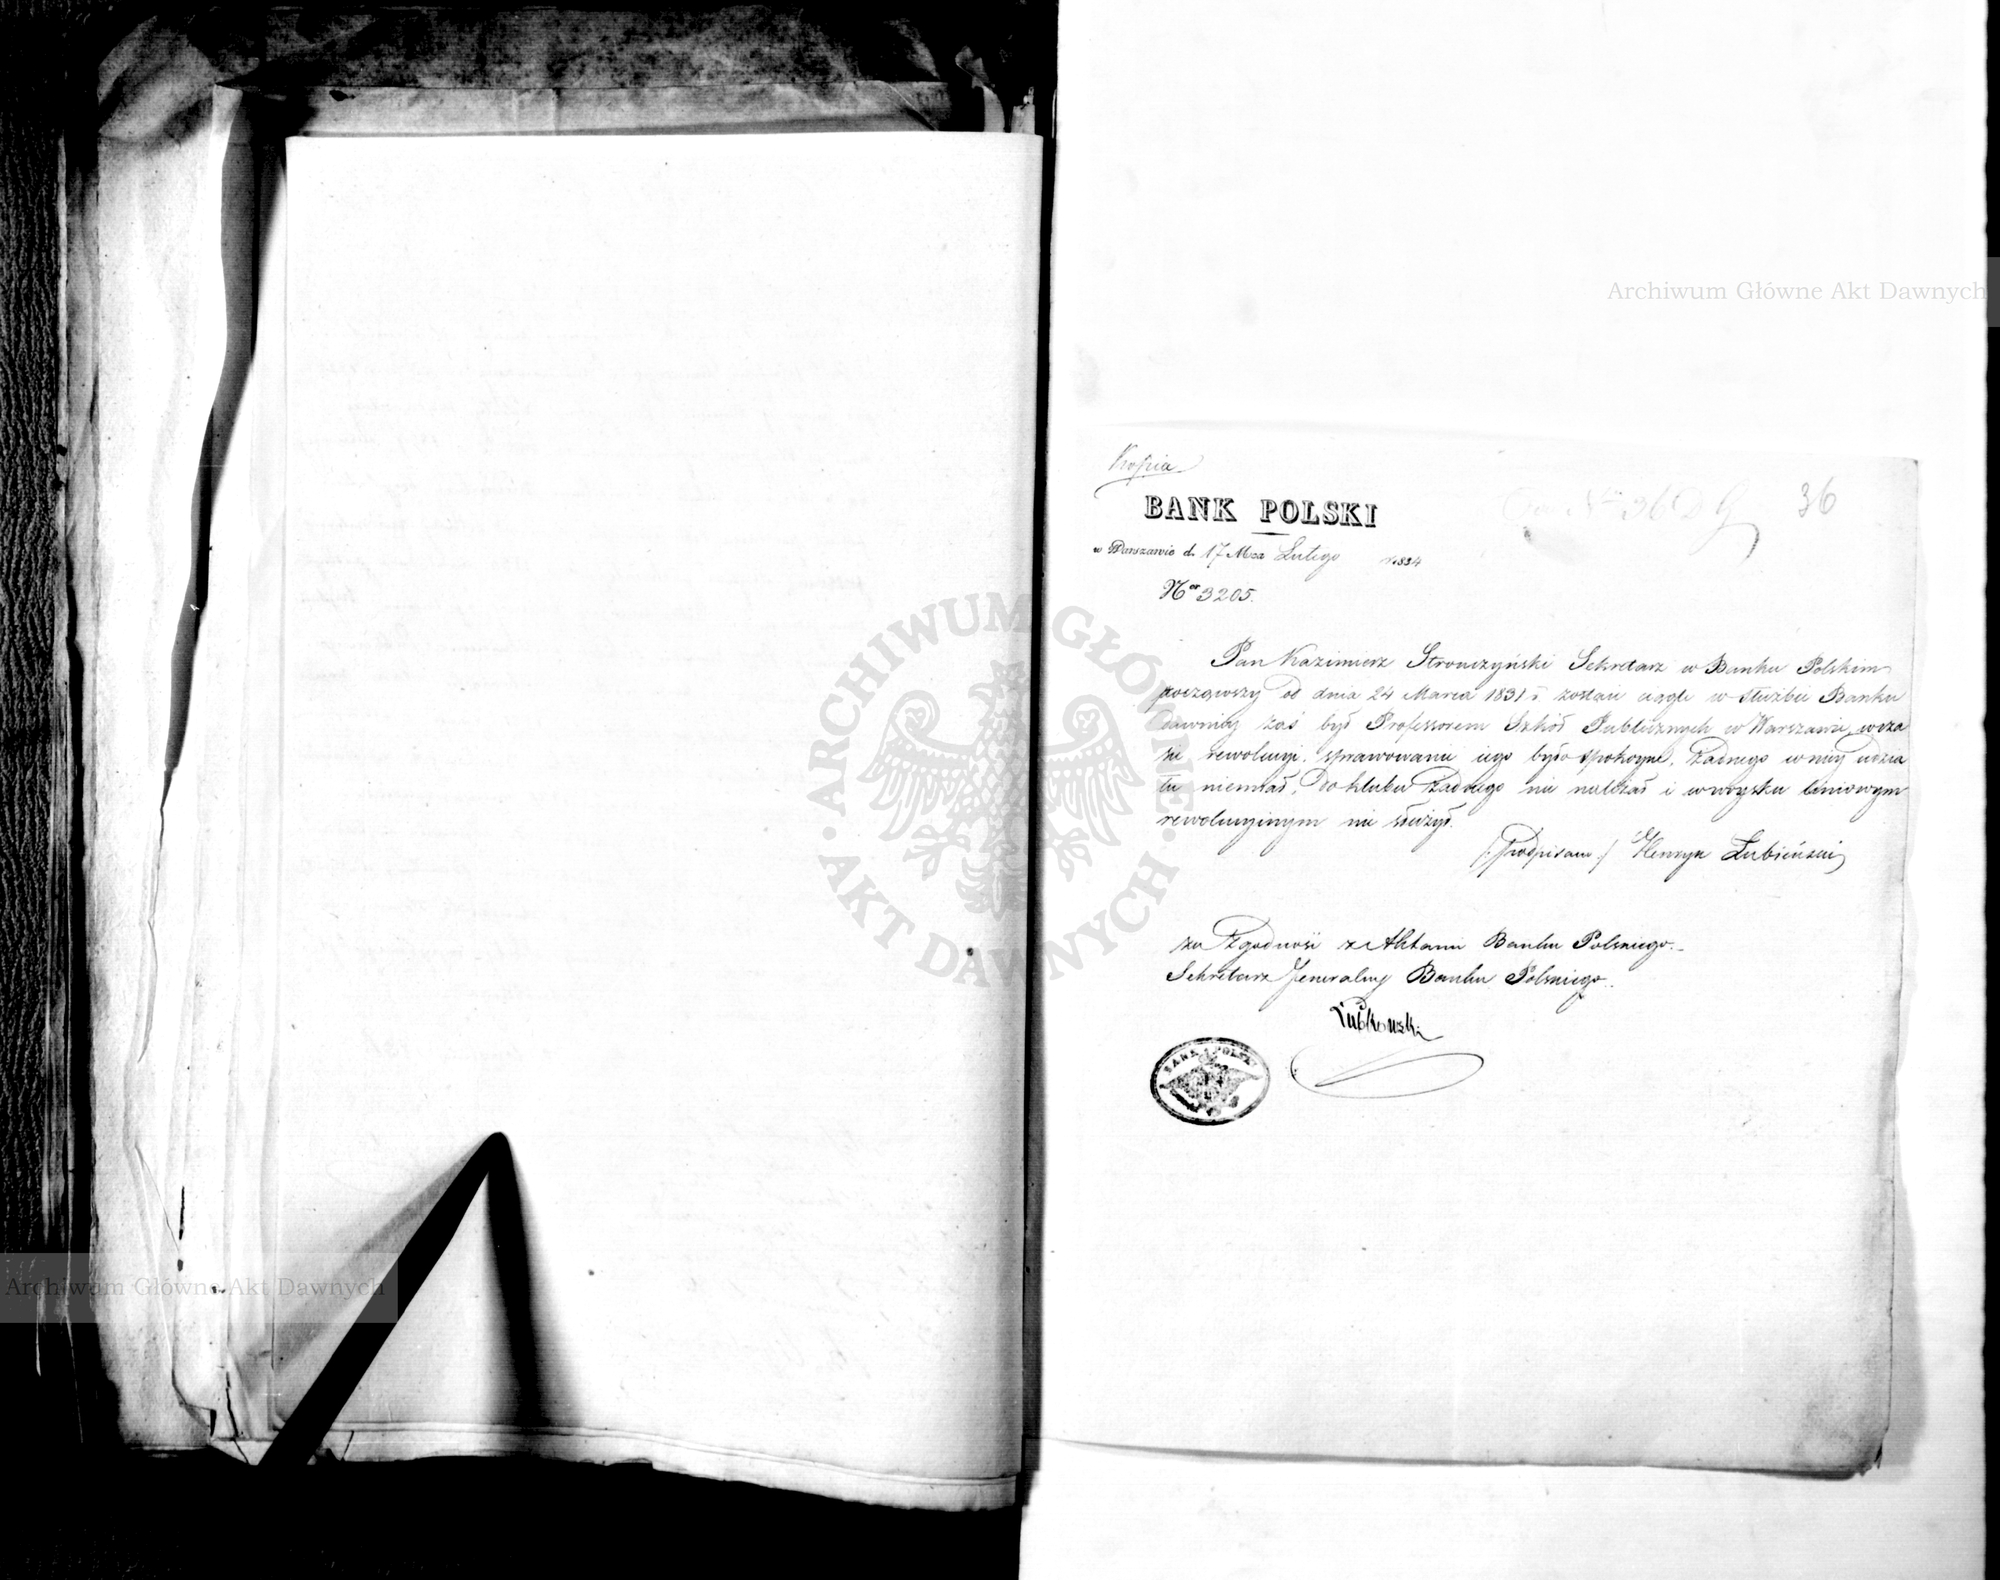 Archiwum Główne Akt Dawnych
Kopia
36
BANK POLSKI
w Warszawie d. 17 Mca Lutego 1834
Nor 3205.
Pan Kazimierz Stronczyński Sekretarz w Banku Polskim
począwszy od dnia 24 Marca 1831 r zostaie ciągle w służbie Banku
dawniey zaś był Professorem Szkół Publicznych w Warszawie, w cza
sie rewolucyi, sprawowanie iego było spokoyne, żadnego w niey udzia
łu niemiał, do klubu żadnego nie należał i w woysku liniowym
rewolucyinym nie służył.
/:Podpisano:/ Henryk Łubieński
za Zgodność z Aktami Banku Polskiego.
Sekretarz Jeneralny Banku Polskiego.
Lubkowski
BANK POLSKI
ARCHIWUM GŁÓWNE
AKT DAWNYCH
Archiwum Główne Akt Dawnych